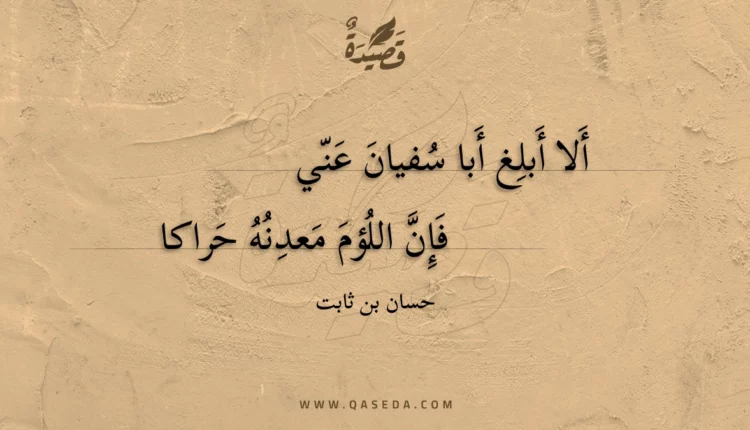 قَصِيدَةٌ
أَلا أَبلِغ أَبا سُفيانَ عَنّي
فَإِنَّ اللُؤمَ مَعدِنُهُ حَراكا
حسان بن ثابت
WWW.QASEDA.COM